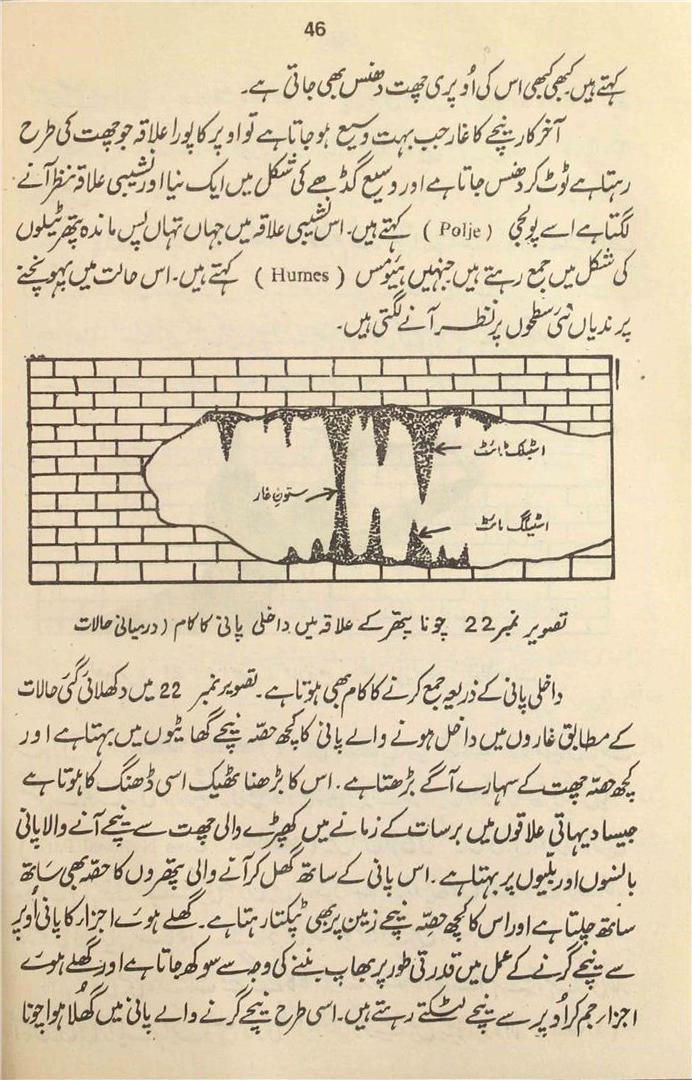 46
کہتے ہیں کبھی کبھی اس کی اُوپری چھت دھنس بھی جاتی ہے۔
آخر کار نیچے کا غار جب بہت وسیع ہو جاتا ہے تو اوپر کا پورا علاقہ جو چھت کی طرح
رہتا ہے ٹوٹ کر دھنس جاتا ہے اور وسیع گڈھے کی شکل میں ایک نیا اور نشیبی علاقہ نظر آنے
لگتا ہے اسے پولجی ( Polje ) کہتے ہیں۔ اس نشیبی علاقہ میں جہاں تہاں پس ماندہ پتھر ٹیلوں
کی شکل میں جمع رہتے ہیں جنہیں ہیومس ( Humes ) کہتے ہیں۔ اس حالت میں پہونچنے
پر ندیاں نئی سطحوں پر نظر آنے لگتی ہیں۔
اسٹیلک ٹائٹ
ستونِ غار
اسٹیلگ مائٹ
تصویر نمبر 22 چونا پتھر کے علاقہ میں داخلی پانی کا کام ( درمیانی حالات
داخلی پانی کے ذریعہ جمع کرنے کا کام بھی ہوتا ہے۔ تصویر نمبر 22 میں دکھلائی گئی حالات
کے مطابق غاروں میں داخل ہونے والے پانی کا کچھ حصّہ نیچے گھاٹیوں میں بہتا ہے اور
کچھ حصّہ چھت کے سہارے آگے بڑھتا ہے۔ اس کا بڑھنا ٹھیک اسی ڈھنگ کا ہوتا ہے
جیسا دیہاتی علاقوں میں برسات کے زمانے میں کھپڑے والی چھت سے نیچے آنے والا پانی
بانسوں اور بلیوں پر بہتا ہے۔ اس پانی کے ساتھ گھل کر آنے والی پتھروں کا حصّہ بھی ساتھ
ساتھ چلتا ہے اور اس کا کچھ حصّہ نیچے زمین پر بھی ٹپکتا رہتا ہے۔ گھلے ہوئے اجزار کا پانی اُوپر
سے نیچے گرنے کے عمل میں قدرتی طور پر بھاپ بننے کی وجہ سے سوکھ جاتا ہے اور گھلے ہوئے
اجزار جم کر اُوپر سے نیچے لٹکتے رہتے ہیں۔ اسی طرح نیچے گرنے والے پانی میں گھلا ہوا چونا